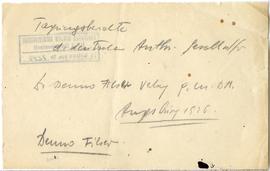 Tagungsberichte
d. deutschen Anthr. Gesellsch.
Dr Benno Filser Verlag G. m. b. H.
Augsburg 1926.
Benno Filser